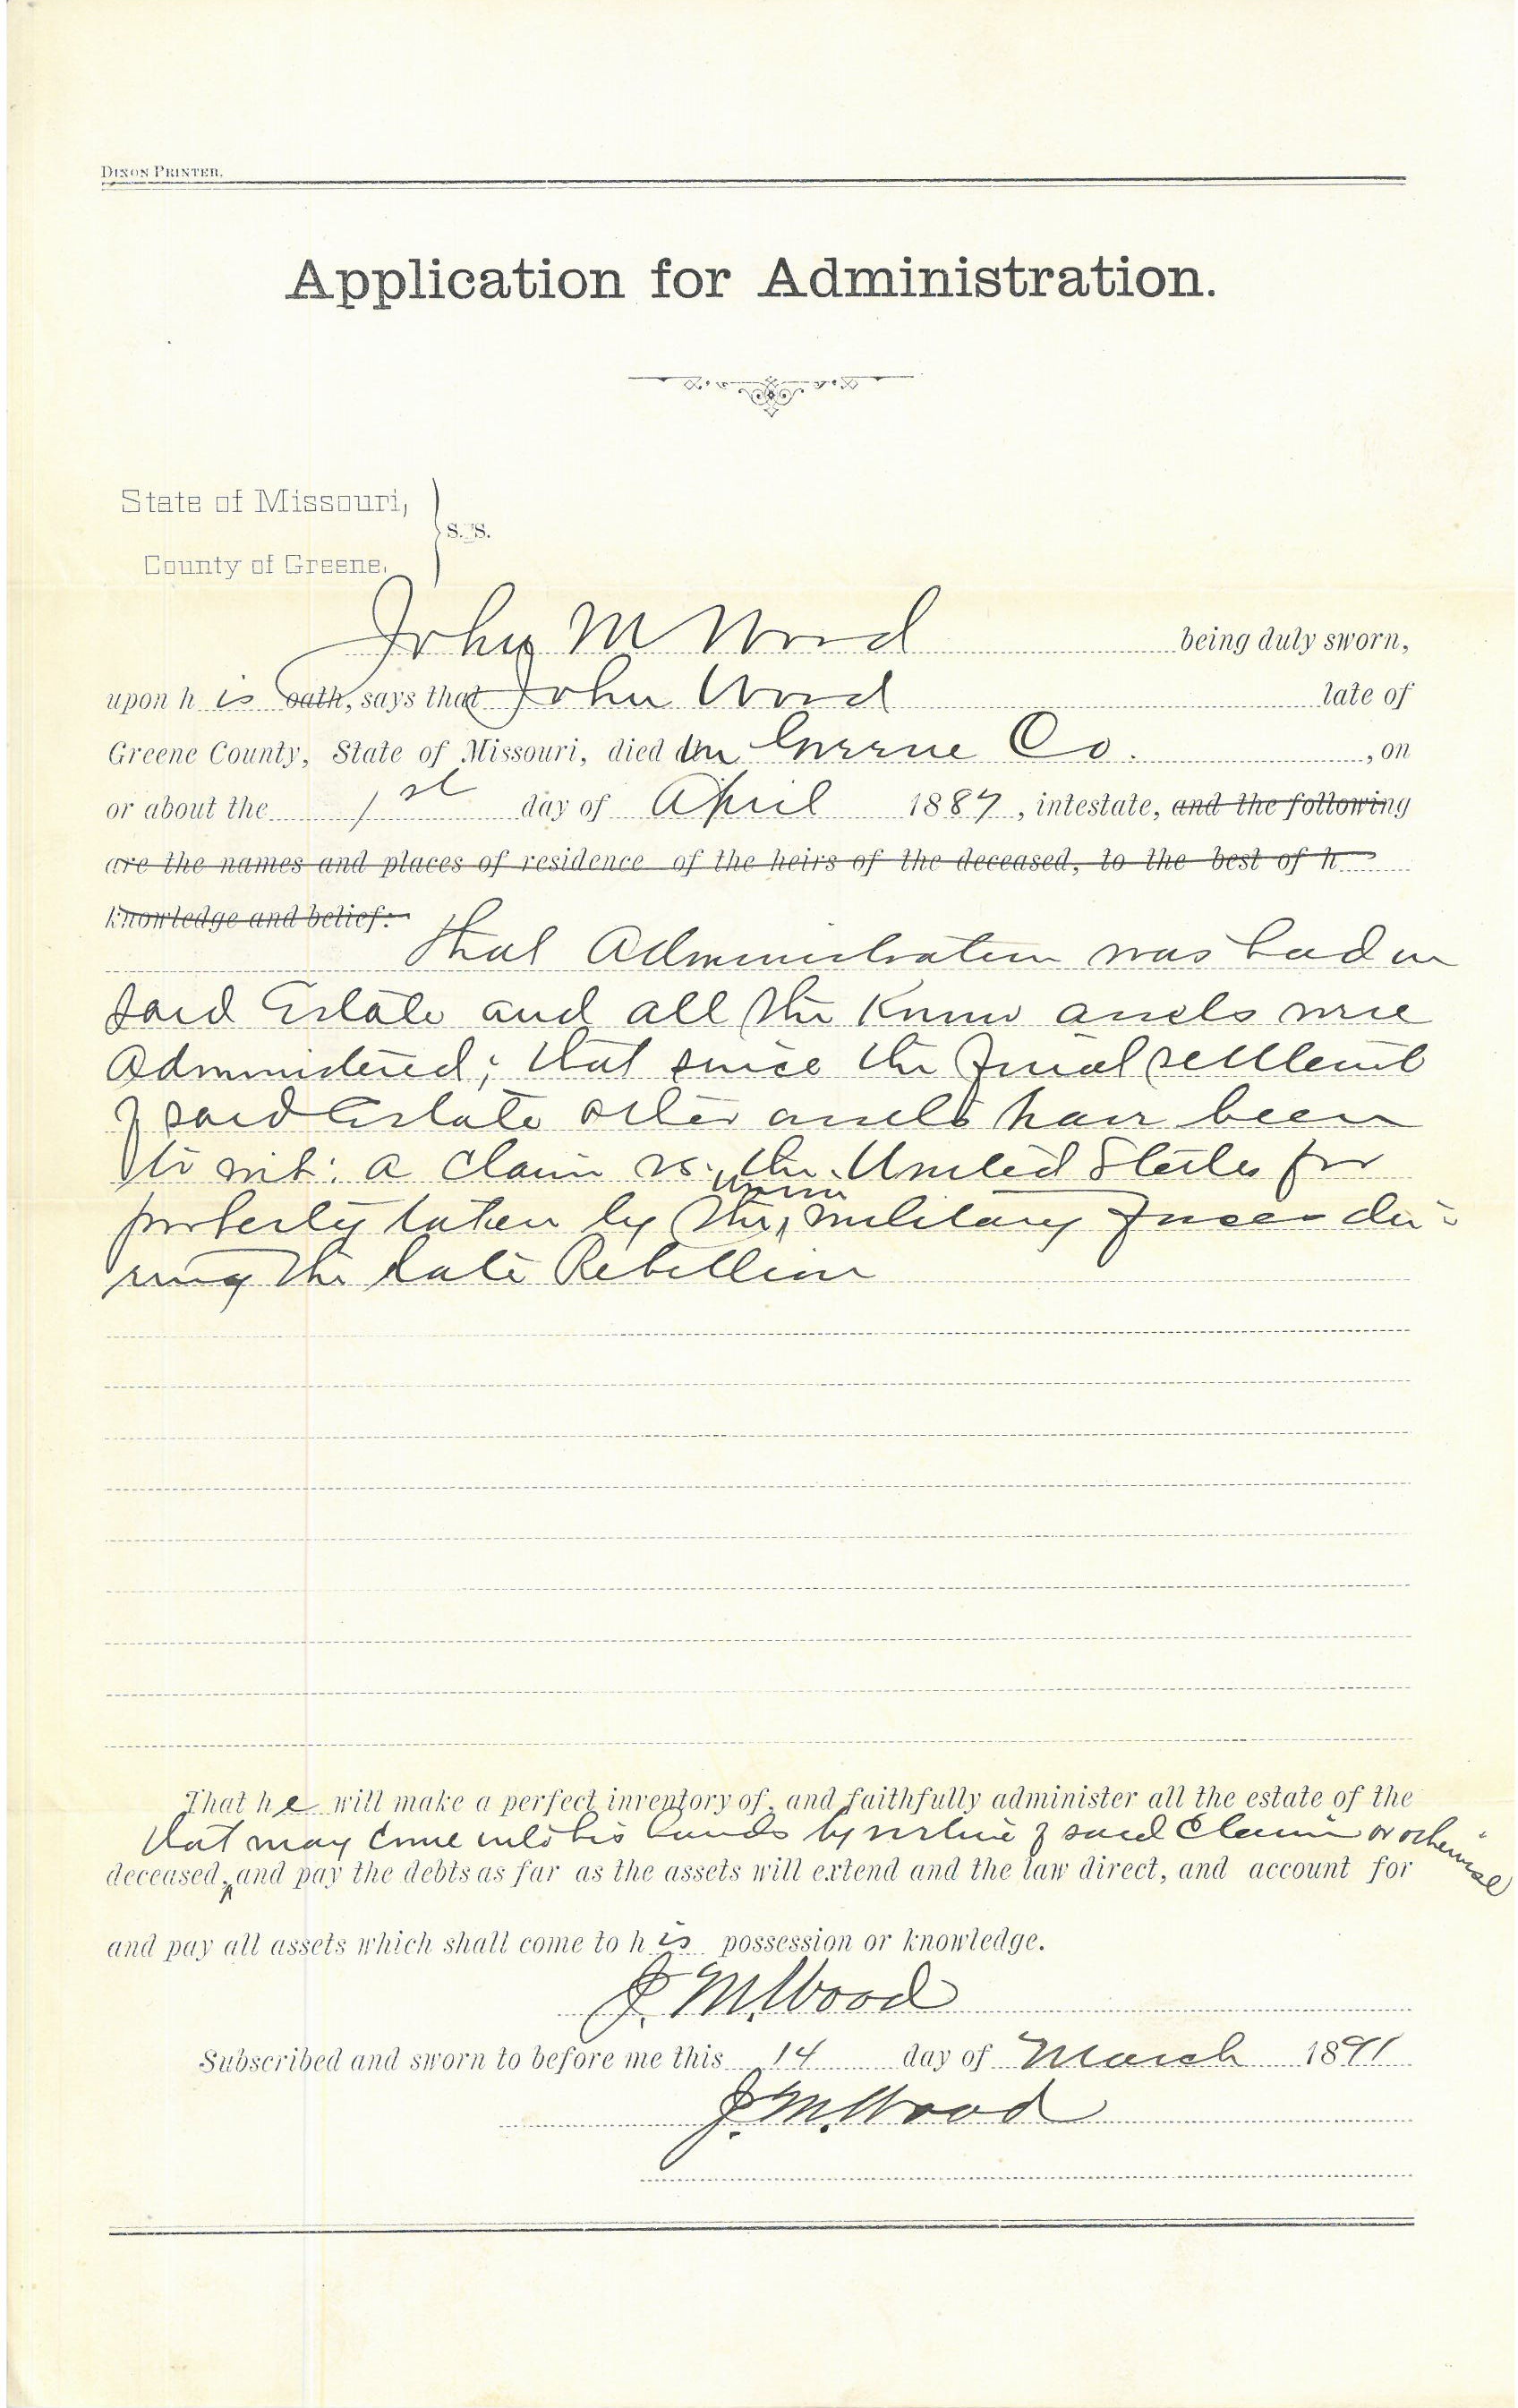 DIXON PRINTER.
Application for Administration.
State of Missouri,
S. S.
County of Greene,
John M Wood being duly sworn,
upon his oath, says that John Wood late of
Greene County, State of Missouri, died in Greene Co. , on
or about the 1st day of April 1887, intestate, and the following
are the names and places of residence of the heirs of the deceased, to the best of h
knowledge and belief:
that Administration was had on
said Estate and all the Known assets were
Administered; that since the final settlement
of said Estate other assets have been
to wit: a claim vs. the United States for
Union
property taken by the military forces du-
ring the late Rebellion
That he will make a perfect inventory of, and faithfully administer all the estate of the
that may come into his hands by virtue of said Claim or otherwise
deceased, and pay the debts as far as the assets will extend and the law direct, and account for
and pay all assets which shall come to his possession or knowledge.
J. M. Wood
Subscribed and sworn to before me this 14 day of March 1891
J. M. Wood